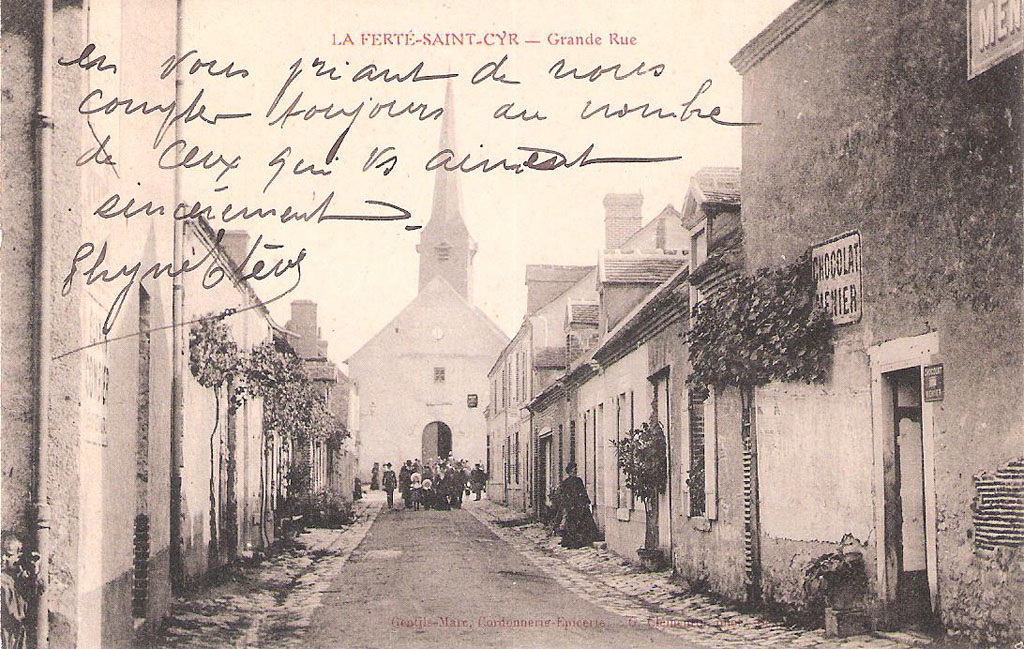 LA FERTÉ-SAINT-CYR — Grande Rue
en vous priant de nous
compter toujours au nombre
de ceux qui vs aiment
sincèrement
MEN
CHOCOLAT
MENIER
CHOCOLAT
MENIER
Gentils-Marc, Cordonnerie-Epicerie